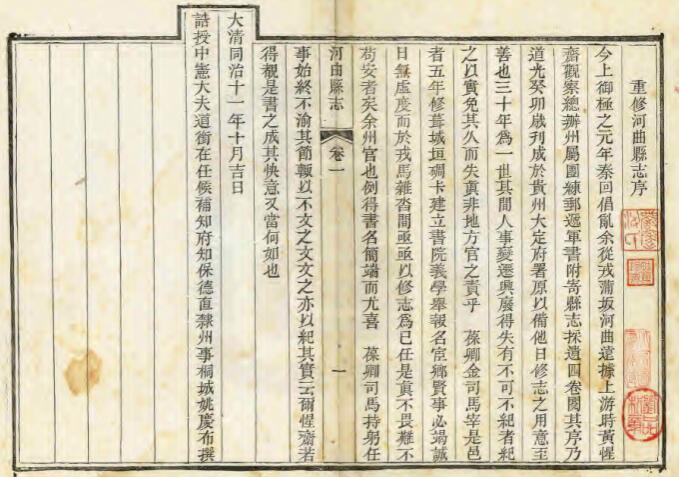 重修河曲縣志序
今上御極之元年秦回倡亂余從戎蒲坂河曲遠據上游時黃惺
齋觀察總辦州屬團練郵遞軍書附寄縣志採遺四卷閱其序乃
道光癸卯歲刊成於貴州大定府署原以備他日修志之用意至
善也三十年爲一世其間人事變遷興廢得失有不可不紀者紀
之以實免其久而失眞非地方官之責乎　葆卿金司馬宰是邑
者五年修葺城垣碉卡建立書院義學舉報名宦鄉賢事必竭誠
日無虛度而於戎馬雜沓間亟亟以修志爲己任是眞不畏難不
苟安者矣余州官也例得書名簡端而尤喜　葆卿司馬持躬任
河曲縣志　卷一　一
事始終不渝其節輙以不文之文文之亦以紀其實云爾惺齋若
得覩是書之成其快意又當何如也
大清同治十一年十月吉日
誥授中憲大夫道銜在任候補知府知保德直隸州事桐城姚慶布撰